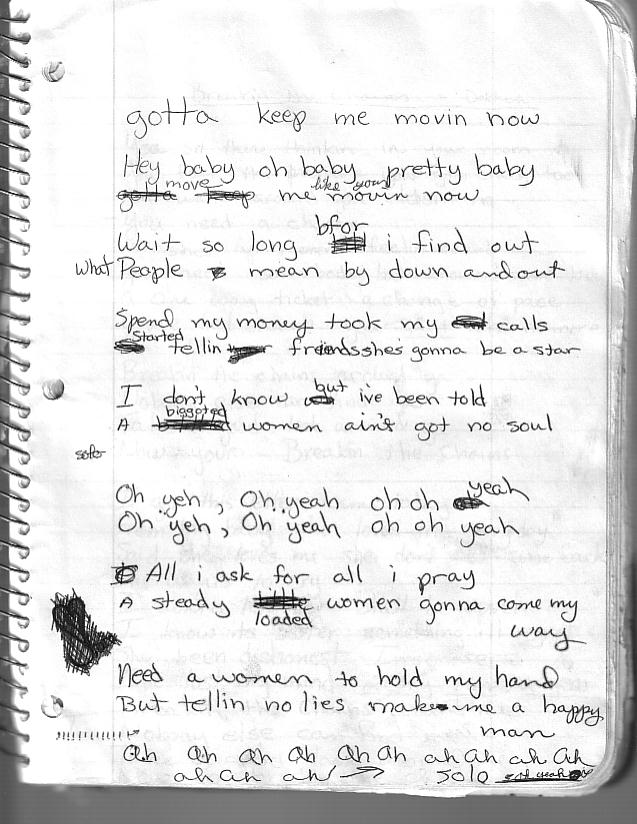 gotta keep me movin now
Hey baby oh baby pretty baby
move like your
gotta keep me movin now
bfor
Wait so long i find out
What People mean by down and out
Spend my money took my calls
Started tellin friends she's gonna be a star
I don't know but ive been told
A biggoted women ain't got no soul
solo
Oh yeh, Oh yeah oh oh yeah
Oh yeh, Oh yeah oh oh yeah
All i ask for all i pray
A steady loaded women gonna come my
way
Need a women to hold my hand
But tellin no lies make me a happy
man
ah ah ah ah ah ah ah ah ah ah
ah ah ah solo